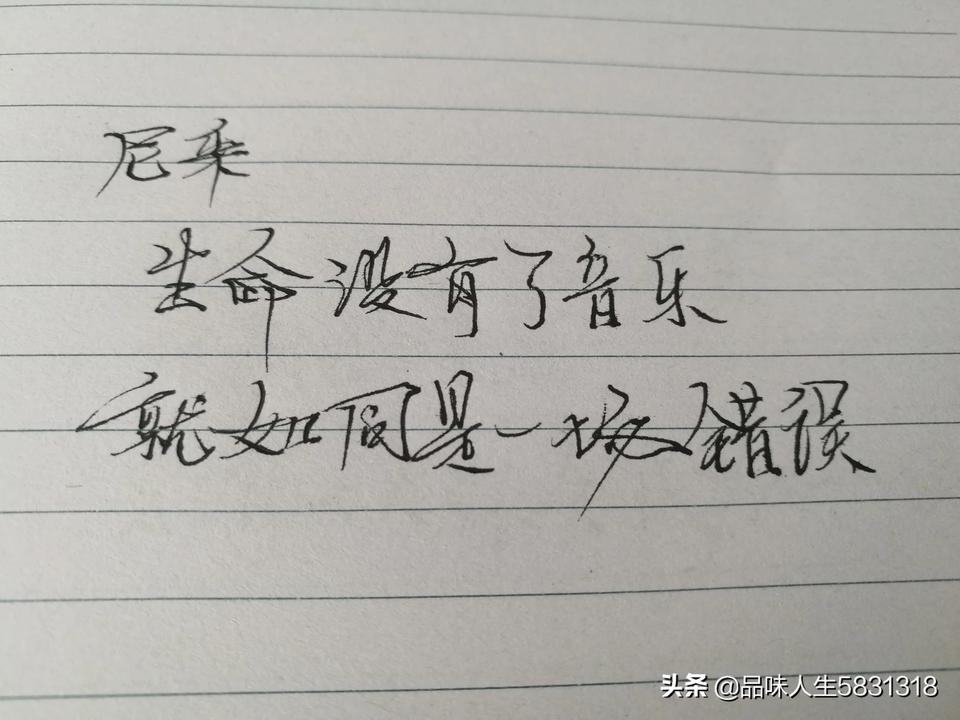 尼采
生命没有了音乐
就如同是一场错误
头条 @品味人生5831318